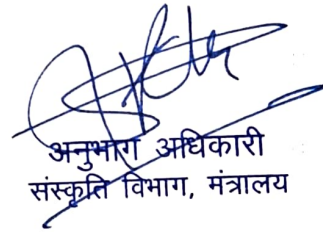 अनुभाग अधिकारी
संस्कृति विभाग, मंत्रालय